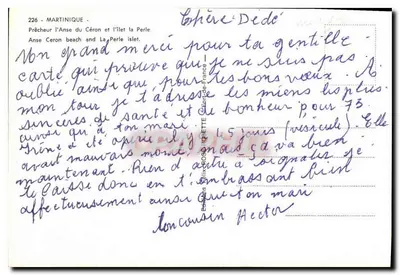 Chère Dédé
226 - MARTINIQUE -
Prêcheur l'Anse du Céron et l'Ilet la Perle
Anse Ceron beach and La Perle islet.
Un grand merci pour ta gentille
carte, qui prouve que je ne suis pas
oublié ainsi que, pour tes bons vœux. A
mon tour je t'adresse les miens les plus
sincères de santé et de bonheur pour 73
ainsi qu'à ton mari
Irène a été opérée il y a 15 jours (vésicule). Elle
avait mauvais moral, mais ça va bien
maintenant. Rien d'autre à signaler je
te laisse donc en t'embrassant bien
affectueusement ainsi que ton mari
Ton cousin Hector